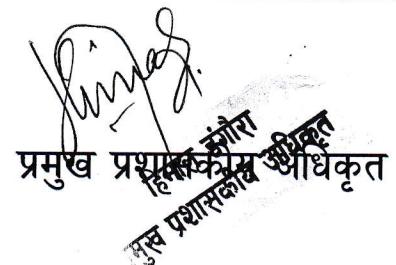 प्रमुख प्रशासकीय अधिकृत
डंगौरा
प्रमुख प्रशासकीय अधिकृत